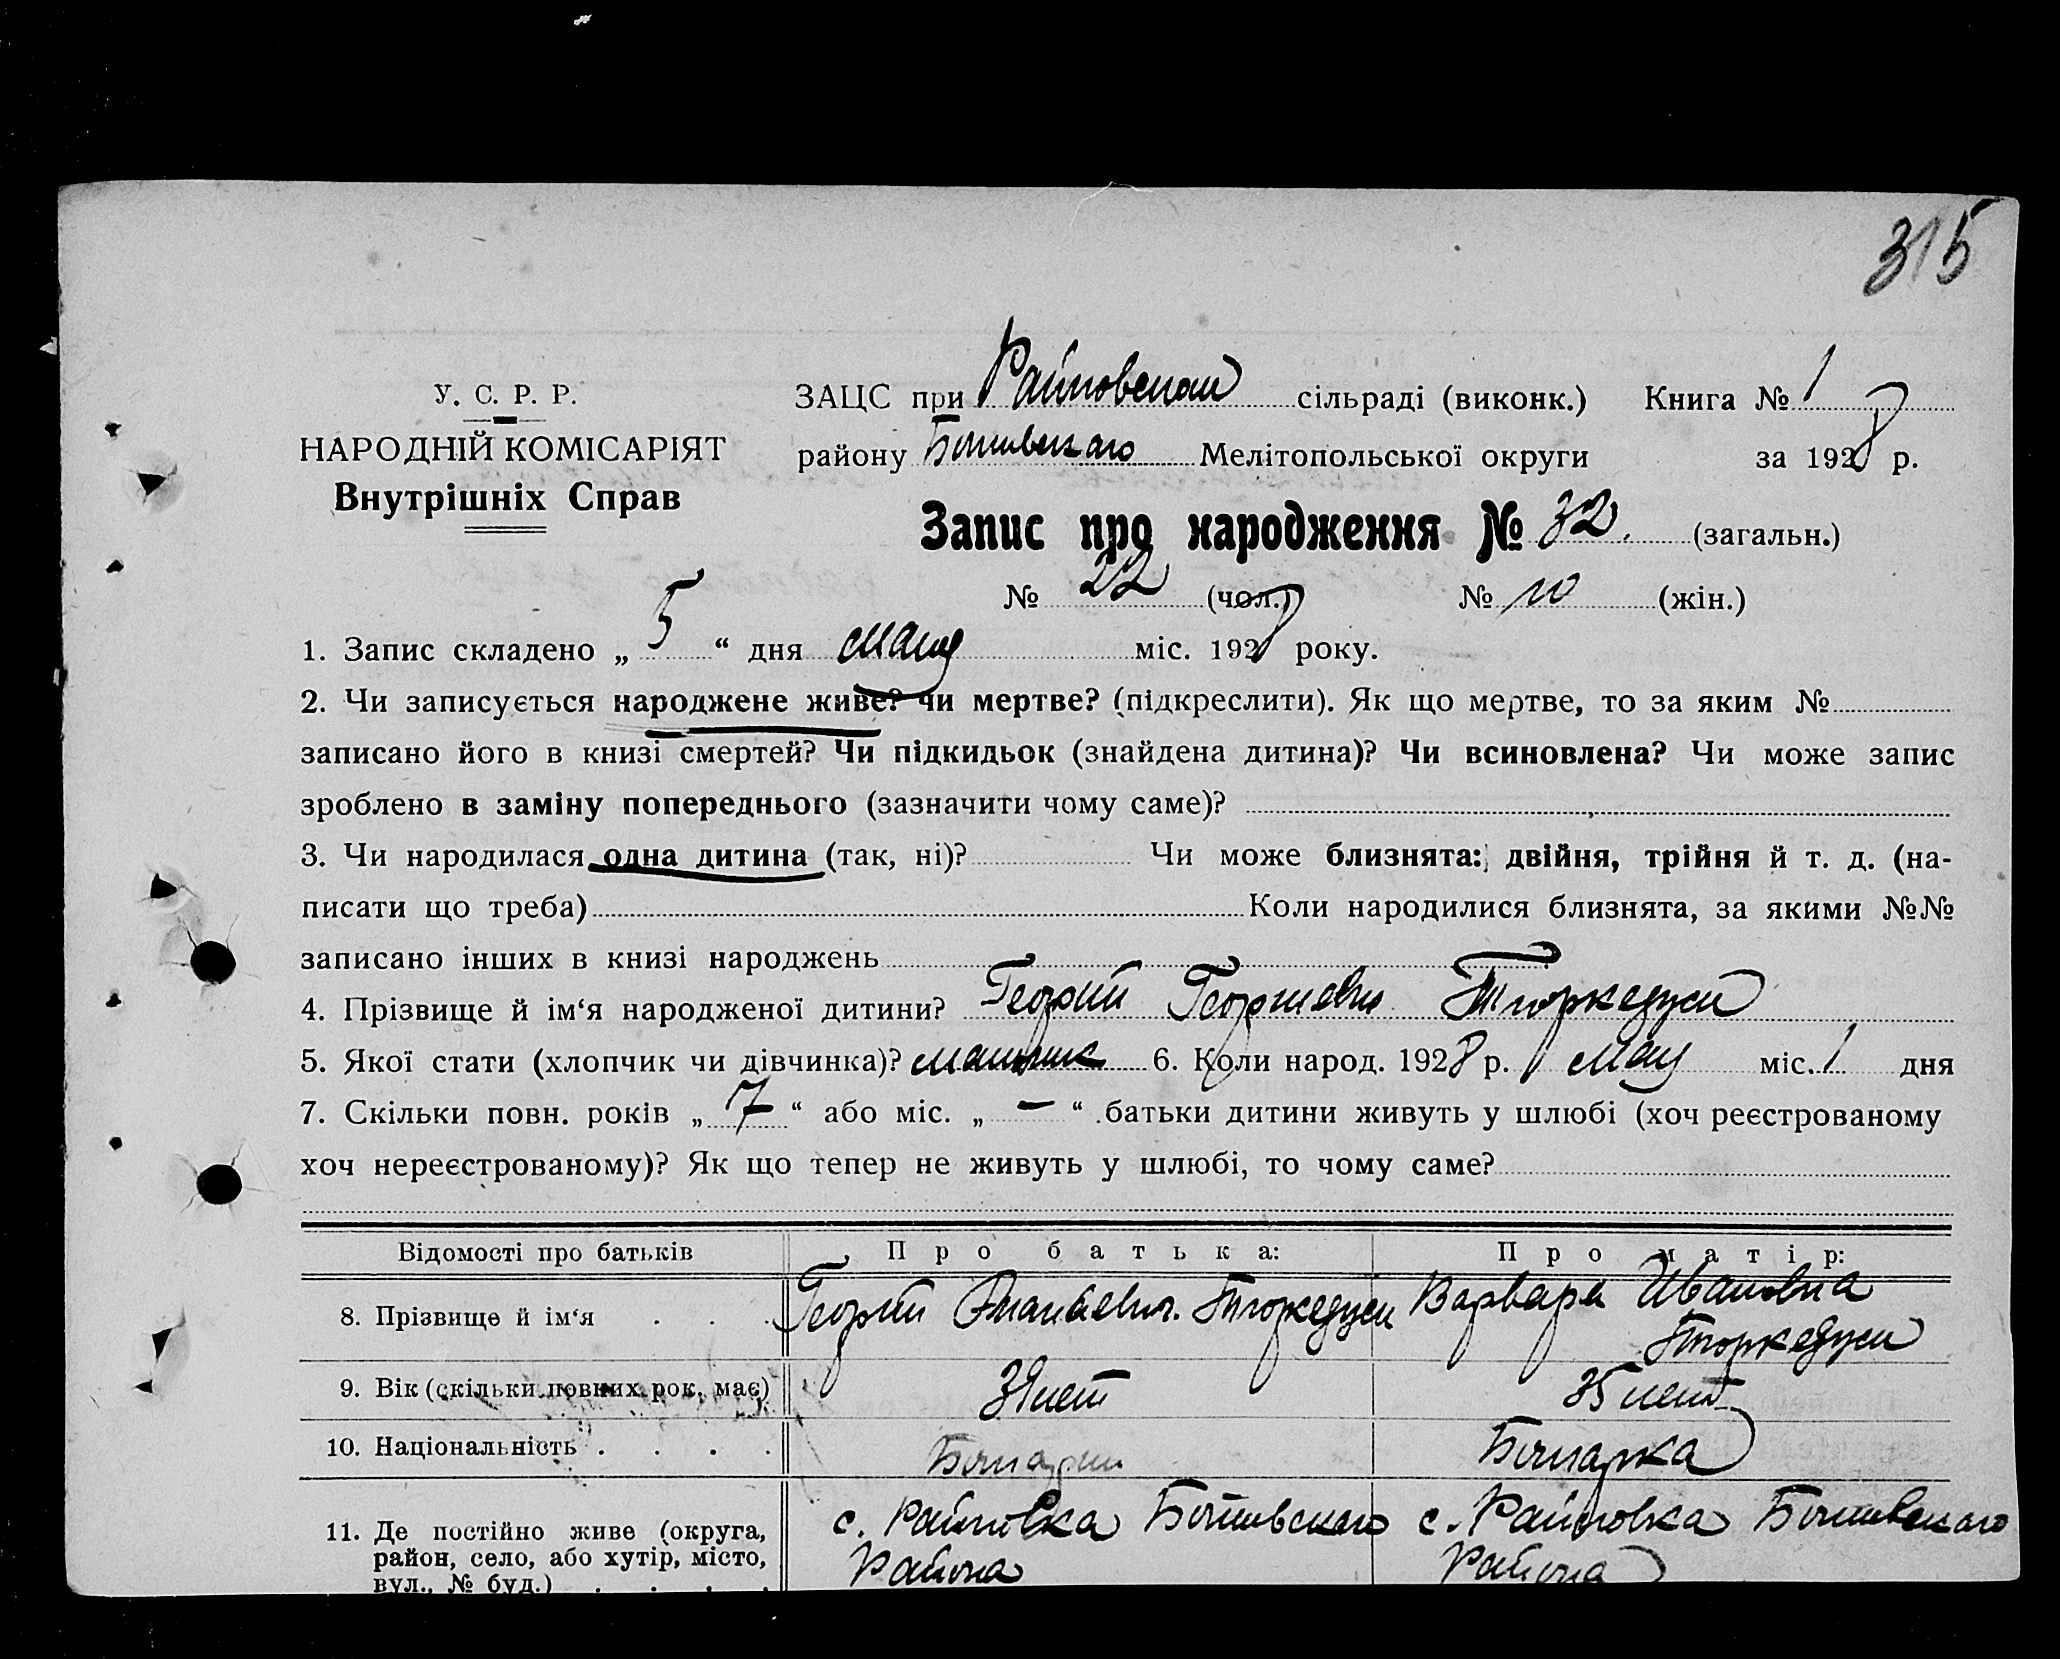 315
У. С. Р. Р.
НАРОДНІЙ КОМІСАРІЯТ
Внутрішніх Справ
ЗАЦС при Райновском сільраді (виконк.) Книга № 1
району Ботивского Мелітопольської округи за 1928 р.
Запис про народження № 32. (загальн.)
№ 22 (чол.) № 10 (жін.)
1. Запис складено „ 5 “ дня мая міс. 1928 року.
2. Чи записується народжене живе? чи мертве? (підкреслити). Як що мертве, то за яким №
записано його в книзі смертей? Чи підкидьок (знайдена дитина)? Чи всиновлена? Чи може запис
зроблено в заміну попереднього (зазначити чому саме)?
3. Чи народилася одна дитина (так, ні)? Чи може близнята: двійня, трійня й т. д. (на-
писати що треба) Коли народилися близнята, за якими №№
записано інших в книзі народжень
4. Прізвище й ім‘я народженої дитини? Георгий Георгиевич
5. Якої стати (хлопчик чи дівчинка)? мальчик 6. Коли народ. 1928 р. мая міс. 1 дня
7. Скільки повн. років „ 7 “ або міс. „ — “ батьки дитини живуть у шлюбі (хоч реєстрованому
хоч нереєстрованому)? Як що тепер не живуть у шлюбі, то чому саме?
Відомості про батьків Про батька: Про матір:
8. Прізвище й ім‘я . . . Георгий Варвара Ивановна
9. Вік (скільки повних рок. має) лет 35 лет
10. Національність . . . . Болгарин Болгарка
11. Де постійно живе (округа, район, село, або хутір, місто, вул., № буд.) . . . .
с. Райновка Ботивского
Района
с. Райновка Ботивского
Района